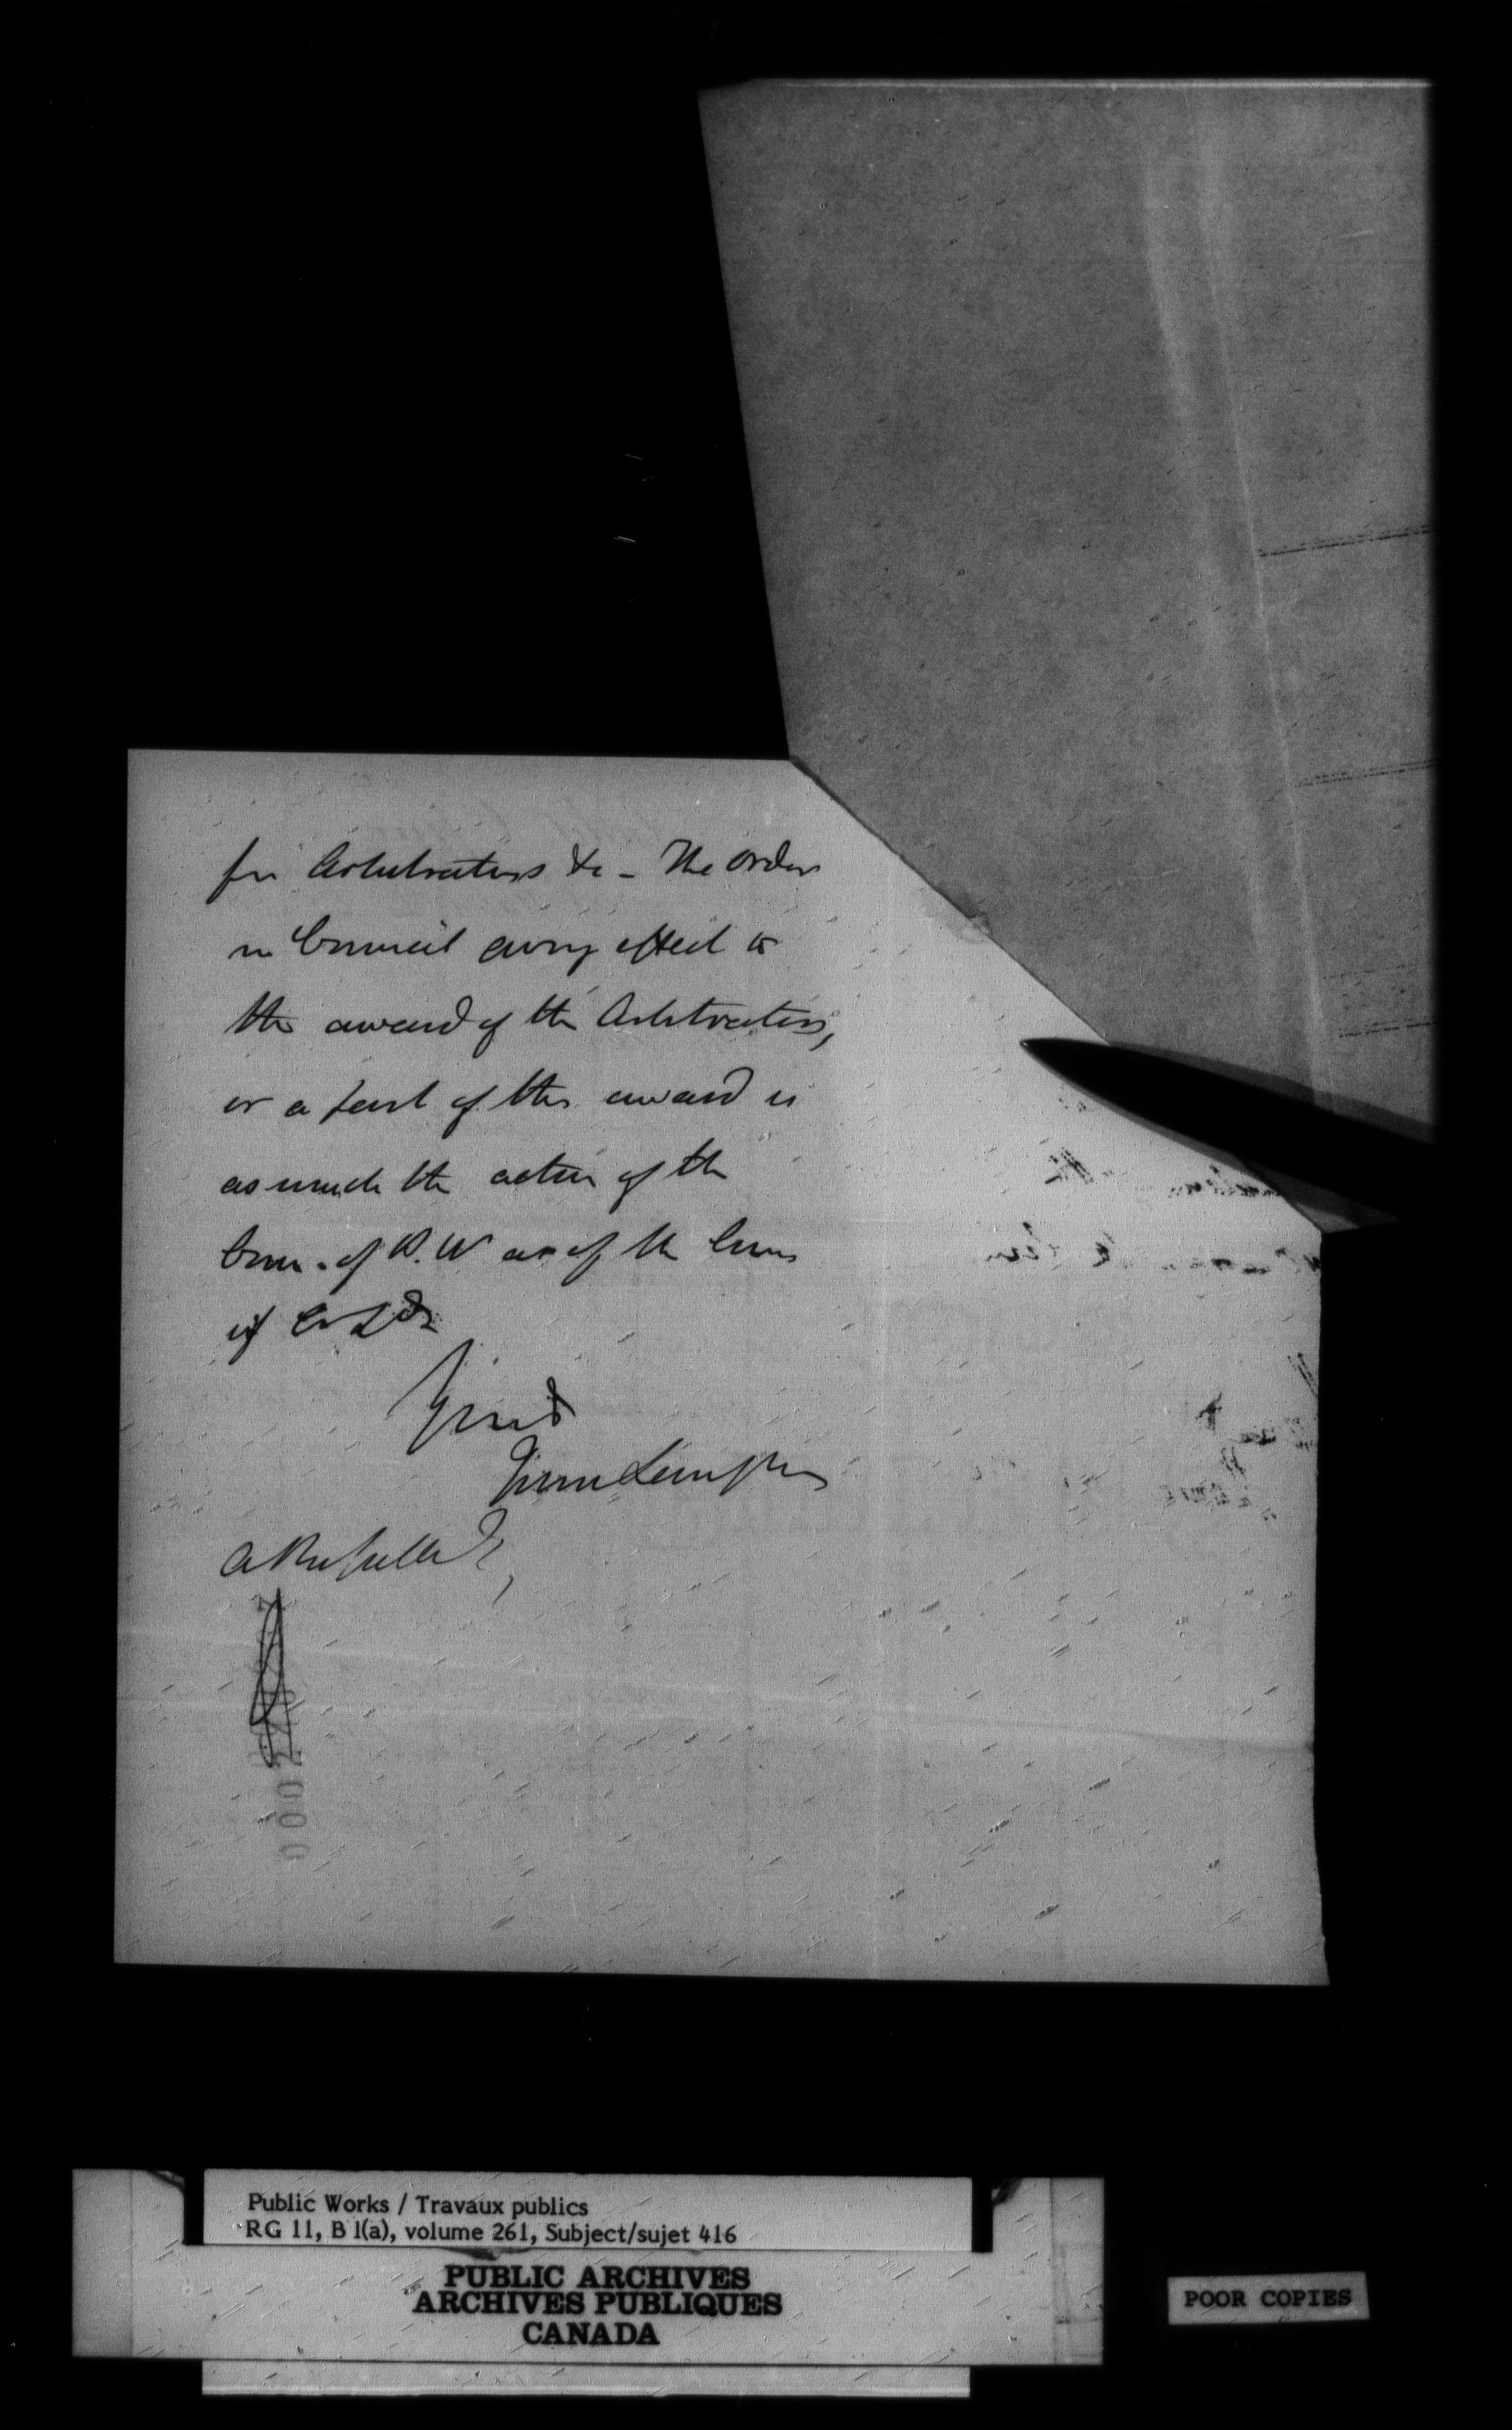 for Arbitrators &c - The Order
in Council giving effect to
the award of the Arbitrators,
or a part of the award is
as much the action of the
Com. of P. W as of the Com
of
Yours
A Russell
000
Public Works / Travaux publics
RG 11, B 1(a), volume 261, Subject/sujet 416
PUBLIC ARCHIVES
ARCHIVES PUBLIQUES
CANADA
POOR COPIES